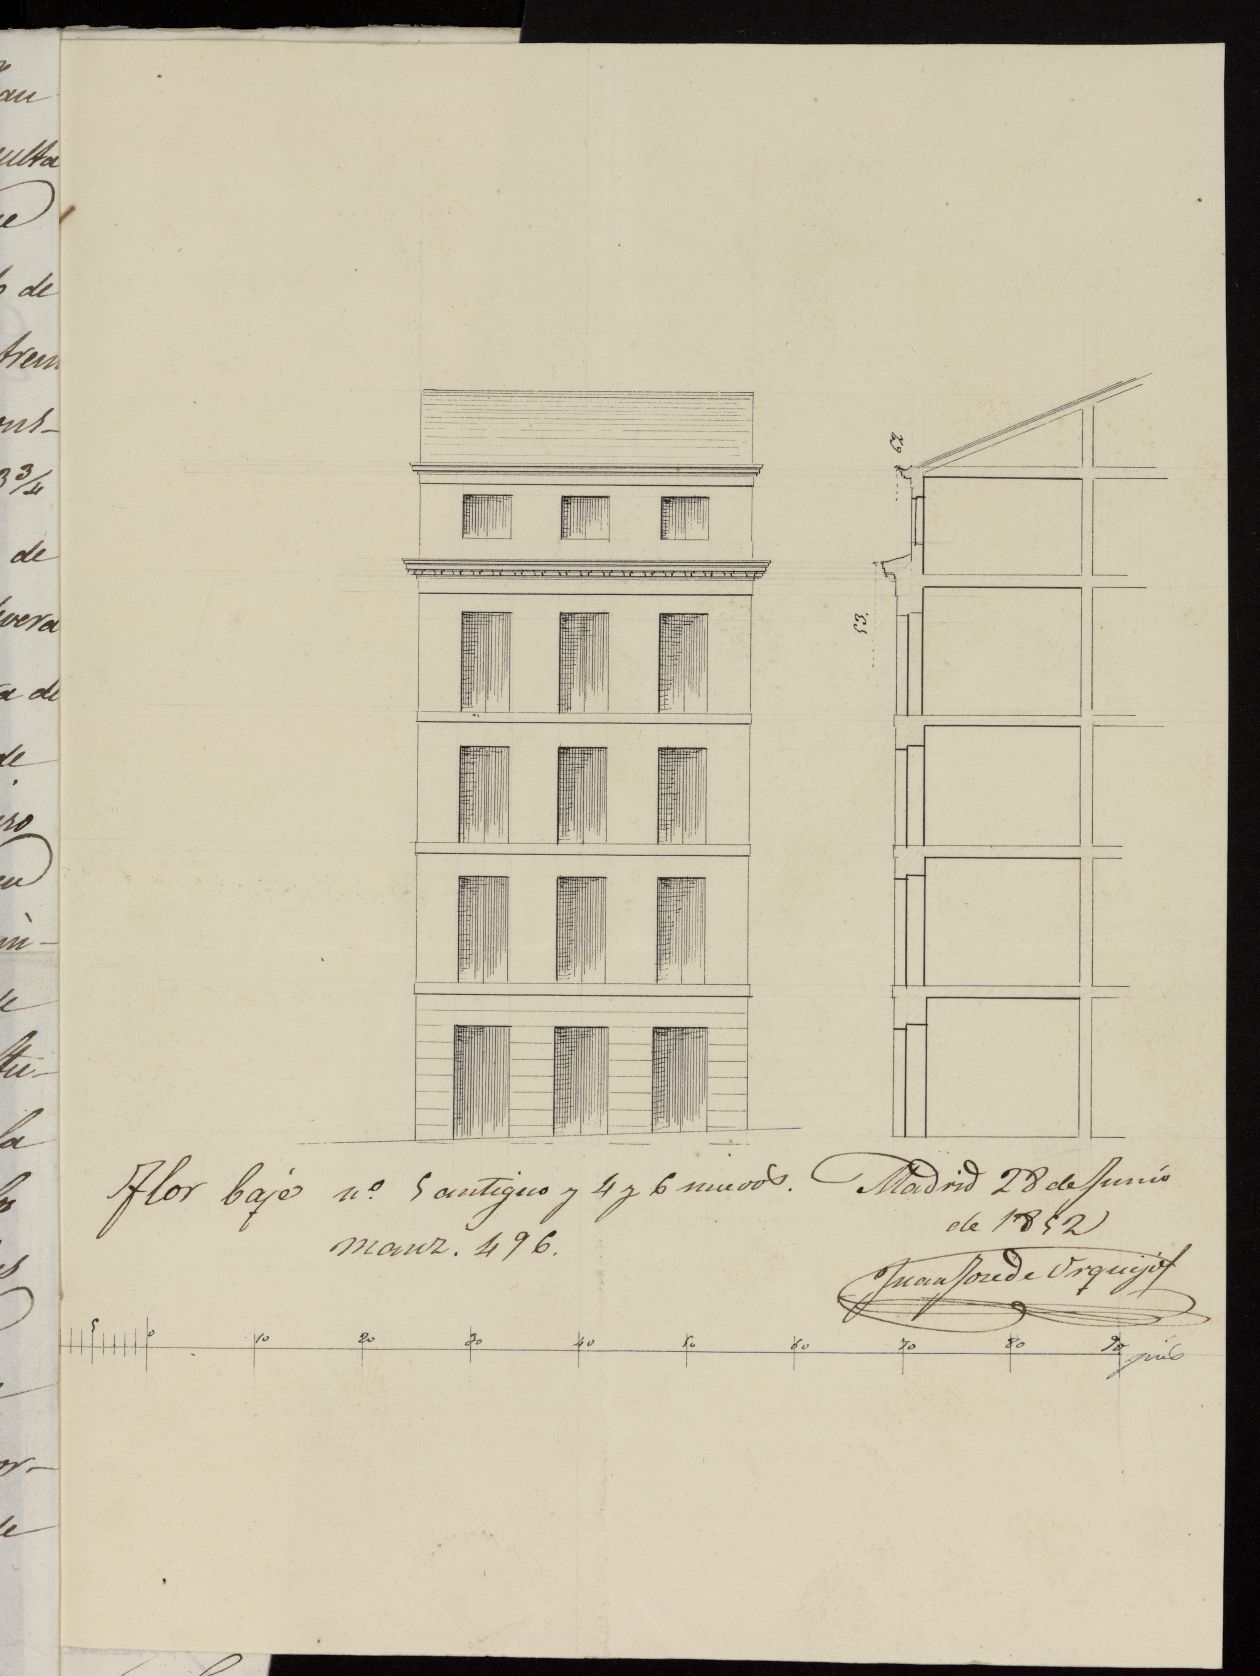 au
sulta
de
trem
ons-
3 3/4
de
vera
ta de
de
en
de
la
or-
29
53.
Flor baja nº 5 antiguo y 4 y 6 nuevos.
manz. 496.
Madrid 28 de Junio
de 1852
Juan José de Urquijo
5 0 10 20 30 40 50 60 70 80 90
pies